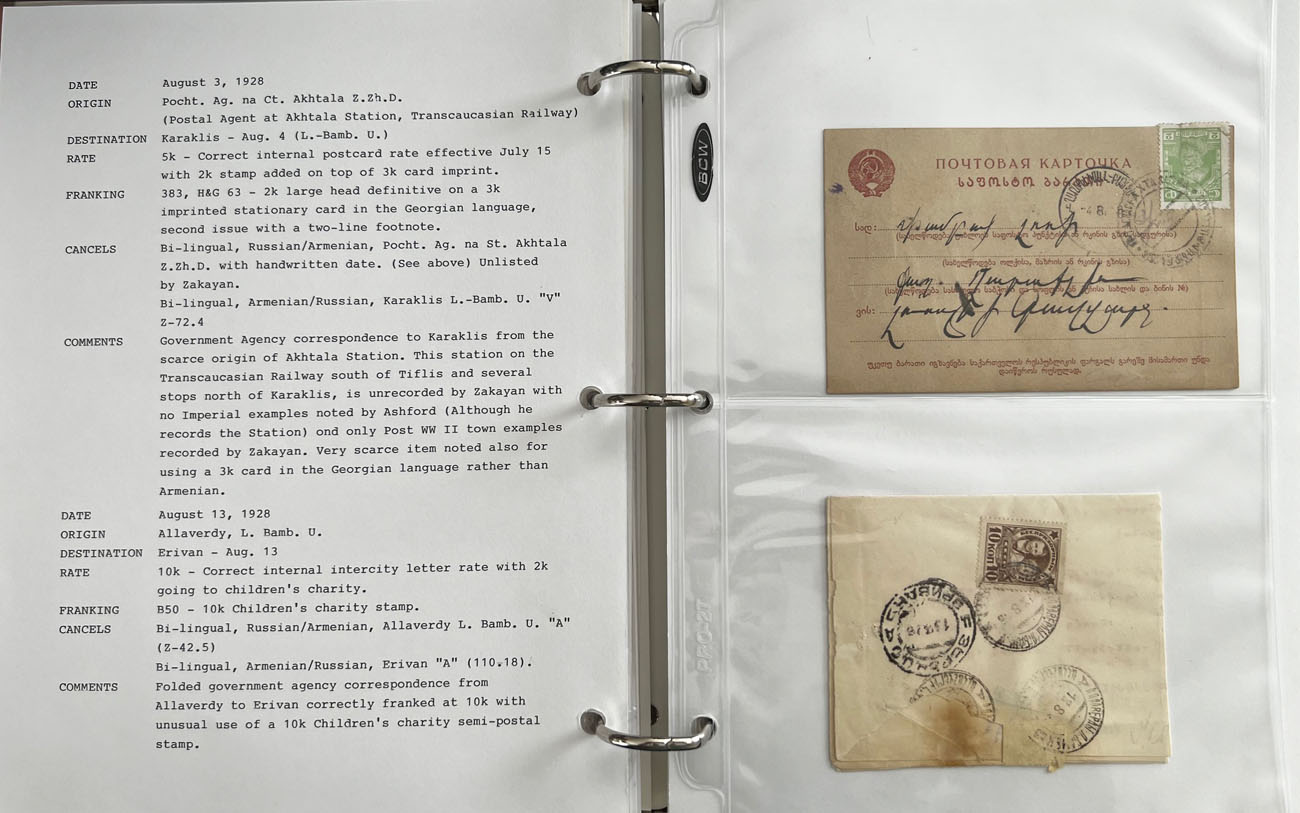 DATE August 3, 1928
ORIGIN Pocht. Ag. na Ct. Akhtala Z.Zh.D.
(Postal Agent at Akhtala Station, Transcaucasian Railway)
DESTINATION Karaklis - Aug. 4 (L.-Bamb. U.)
RATE 5k - Correct internal postcard rate effective July 15
with 2k stamp added on top of 3k card imprint.
FRANKING 383, H&G 63 - 2k large head definitive on a 3k
imprinted stationary card in the Georgian language,
second issue with a two-line footnote.
CANCELS Bi-lingual, Russian/Armenian, Pocht. Ag. na St. Akhtala
Z.Zh.D. with handwritten date. (See above) Unlisted
by Zakayan.
Bi-lingual, Armenian/Russian, Karaklis L.-Bamb. U. "V"
Z-72.4
COMMENTS Government Agency correspondence to Karaklis from the
scarce origin of Akhtala Station. This station on the
Transcaucasian Railway south of Tiflis and several
stops north of Karaklis, is unrecorded by Zakayan with
no Imperial examples noted by Ashford (Although he
records the Station) ond only Post WW II town examples
recorded by Zakayan. Very scarce item noted also for
using a 3k card in the Georgian language rather than
Armenian.
DATE August 13, 1928
ORIGIN Allaverdy, L. Bamb. U.
DESTINATION Erivan - Aug. 13
RATE 10k - Correct internal intercity letter rate with 2k
going to children's charity.
FRANKING B50 - 10k Children's charity stamp.
CANCELS Bi-lingual, Russian/Armenian, Allaverdy L. Bamb. U. "A"
(Z-42.5)
Bi-lingual, Armenian/Russian, Erivan "A" (110.18).
COMMENTS Folded government agency correspondence from
Allaverdy to Erivan correctly franked at 10k with
unusual use of a 10k Children's charity semi-postal
stamp.
BCW
PRO-2T
ПОЧТОВАЯ КАРТОЧКА
ᲡᲐᲤᲝᲡᲢᲝ
სად:
(სახელწოდება ოლქისა, მაზრის ან რკინის გზისა)
ვის:
უკეთუ ბარათი იგზავნება საქართველოს რესპუბლიკის ფარგალს გარეშე მისამართი უნდა
დაიწეროს რუსულად.
10 КОП 10